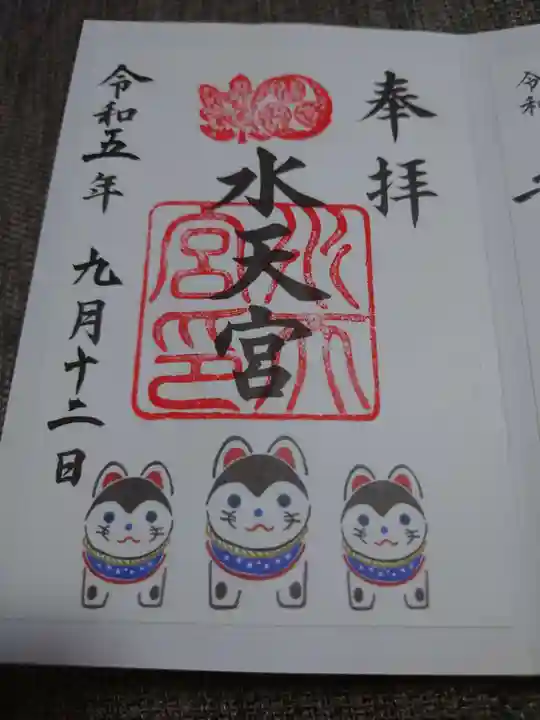 奉拝
水天宮
水天宮印
令和五年 九月十二日
令和